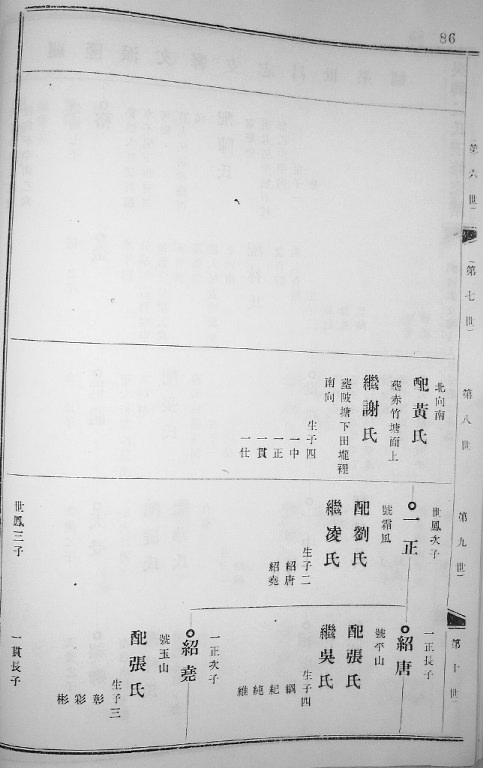 86
第六世
第七世
第八世
北向南
配黃氏
墓赤竹塘面上
繼謝氏
墓陂塘下田壠裡
南向
生子四
一中
一正
一貫
一仕
第九世
世鳳次子
一正
號霜風
配劉氏
繼凌氏
生子二
紹唐
紹堯
世鳳三子
第十世
一正長子
紹唐
號平山
配張氏
繼吳氏
生子四
綱
紀
純
維
一正次子
紹堯
號玉山
配張氏
生子三
彰
彩
彬
一貫長子